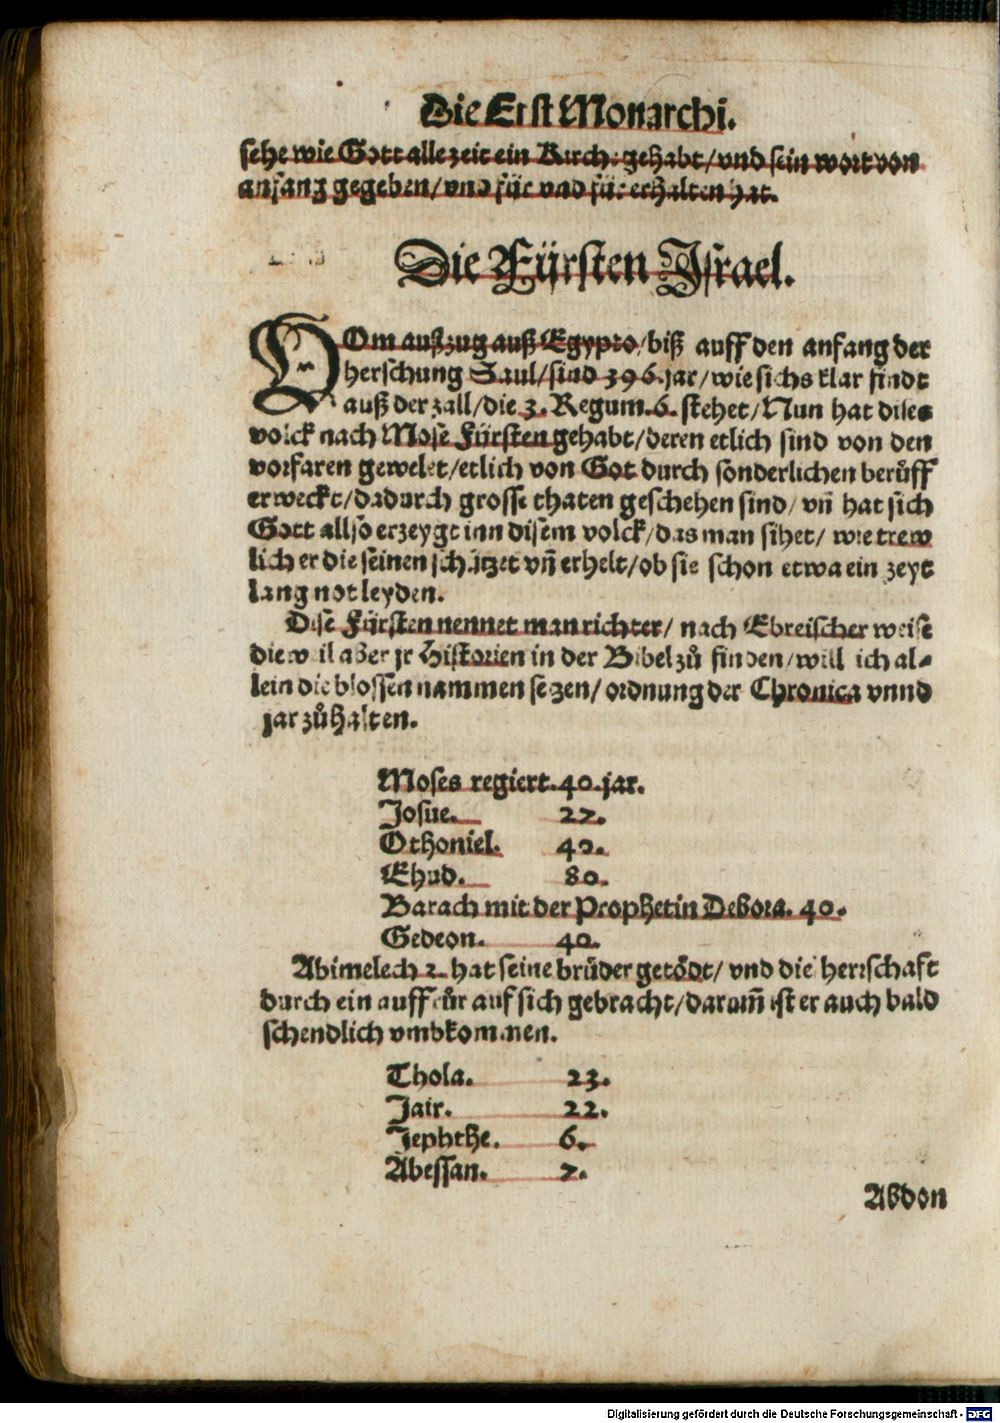 Die Erst Monarchi.
sehe wie Gott alle zeit ein Kirch gehabt/ vnd sein wort von
anfang gegeben/ vnd für vnd für erhalten hat.
Die Fürsten Israel.
VOm außzug auß Egypto/ biß auff den anfang der
herschung Saul/ sind 396. jar/ wie sichs klar findt
auß der zall/ die 3. Regum. 6. stehet/ Nun hat dises
volck nach Mose Fürsten gehabt/ deren etlich sind von den
vorfaren gewelet/ etlich von Got durch sonderlichen berůff
erweckt/ dadurch grosse thaten geschehen sind/ vñ hat sich
Gott allso erzeygt inn disem volck/ das man sihet/ wie trew
lich er die seinen schützet vñ erhelt/ ob sie schon etwa ein zeyt
lang not leyden.
Dise Fürsten nennet man richter/ nach Ebreischer weise
die weil aber jr Historien in der Bibel zů finden/ will ich al-
lein die blossen nammen sezen/ ordnung der Chronica vnnd
jar zů halten.
Moses regiert. 40. jar.
Josue. 27.
Othoniel. 40.
Ehud. 80.
Barach mit der Prophetin Debora. 40.
Gedeon. 40.
Abimelech 2. hat seine brüder getödt/ vnd die herrschaft
durch ein auffrůr auf sich gebracht/ darum̃ ist er auch bald
schendlich vmbkommen.
Thola. 23.
Jair. 22.
Jephthe. 6.
Abessan. 7.
Abdon
Digitalisierung gefördert durch die Deutsche Forschungsgemeinschaft - DFG